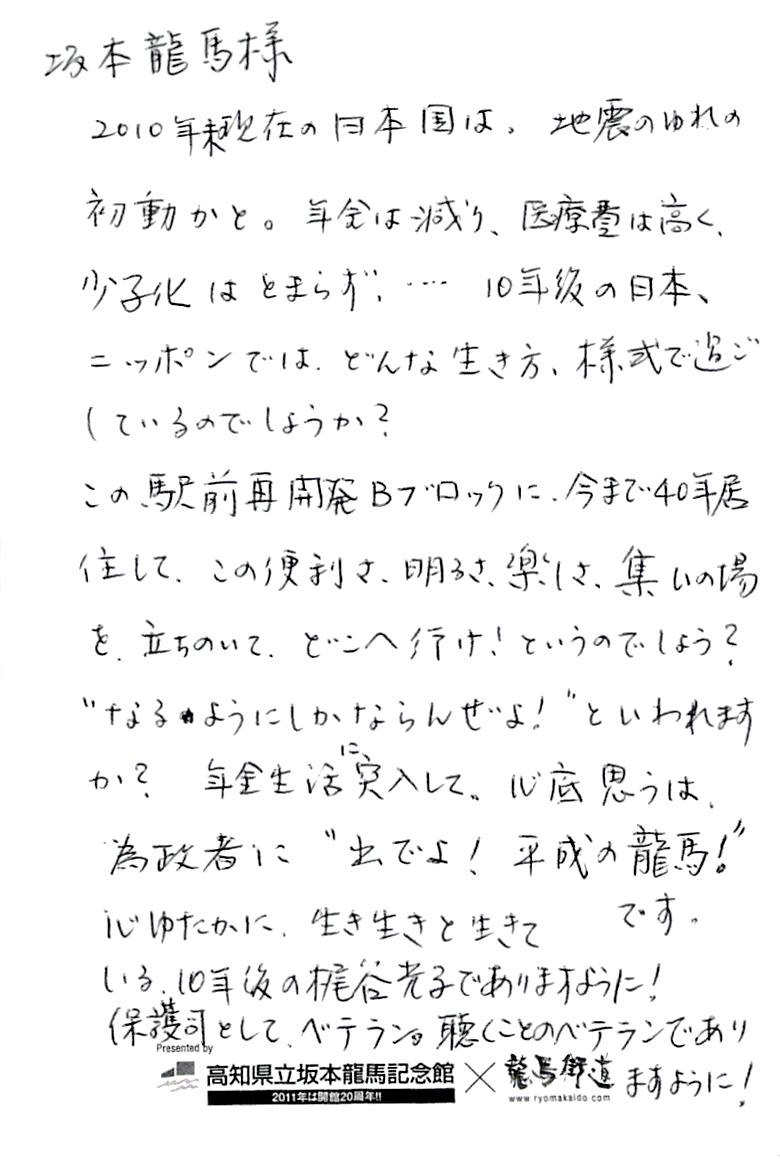 坂本龍馬様
2010年末現在の日本国は、地震のゆれの
初動かと。年金は減り、医療費は高く、
少子化はとまらず、‥‥ 10年後の日本、
ニッポンでは、どんな生き方、様式で過ご
しているのでしょうか?
この駅前再開発Bブロックに、今まで40年居
住して、この便利さ、明るさ、楽しさ、集いの場
を、立ちのいて、どこへ行け!というのでしょう?
"なるようにしかならんぜよ!"といわれます
か? 年金生活に、突入して。心底思うは、
為政者に"出でよ!平成の龍馬!"
です。
心ゆたかに、生き生きと生きて
いる、10年後の梶谷光子でありますように!
保護司として、ベテラン。聴くことのベテランであり
ますように!
Presented by
高知県立坂本龍馬記念館×龍馬街道
2011年は開館20周年!!
www.ryomakaido.com